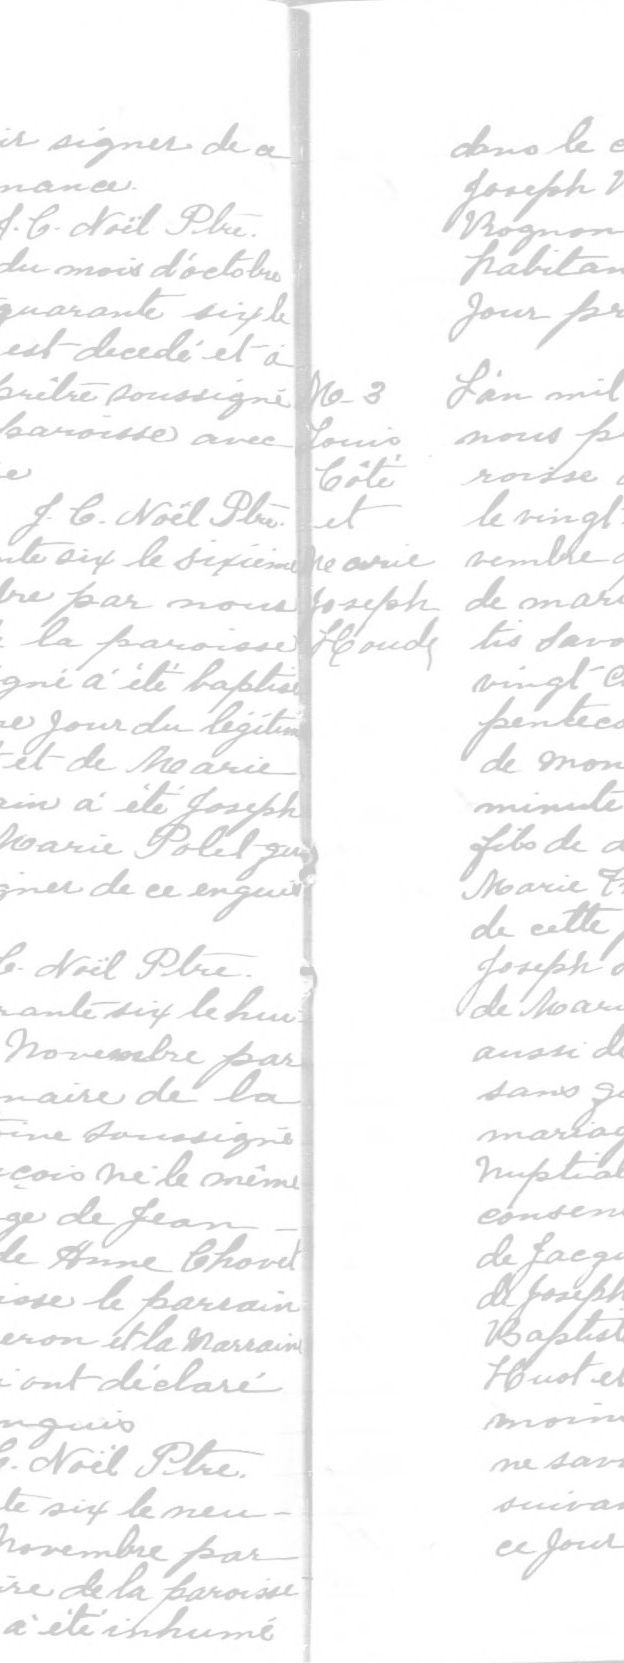 ir signer de a
nance.
J. C. Noël Ptre.
du mois d'octobre
quarante six le
est decedé et a
prêtre soussigné
paroisse avec
e
J. C. Noël Ptre.
nte six le sixième
bre par nous
la paroisse
igné a été baptisé
me jour du légitim
et de Marie
ain a été Joseph
Marie Polet qui
igner de ce enquis
C. Noël Ptre.
rante six le hui-
Novembre par
naire de la
oine soussigné
nçois né le même
ge de Jean -
de Anne Chovet
isse le parrain
eron et la Marraine
i ont déclaré
nquis
C. Noël Ptre.
te six le neu-
Novembre par
ire de la paroisse
a été inhumé
No- 3
Louis
Côté
et
Marie
Joseph
Houde
dans le c
Joseph
Vrognon
habitan
Jour pr
L'an mil
nous p
roisse
le vingt
vembre
de mari
tis Savo
vingt C
penteco
de mon
minute
fils de d
Marie
de cette
Joseph
de Mari
aussi de
sans qu
mariag
Nuptial
consen
de Jacqu
de Joseph
Baptist
Huot et
moin
ne sav
suivan
ce Jour